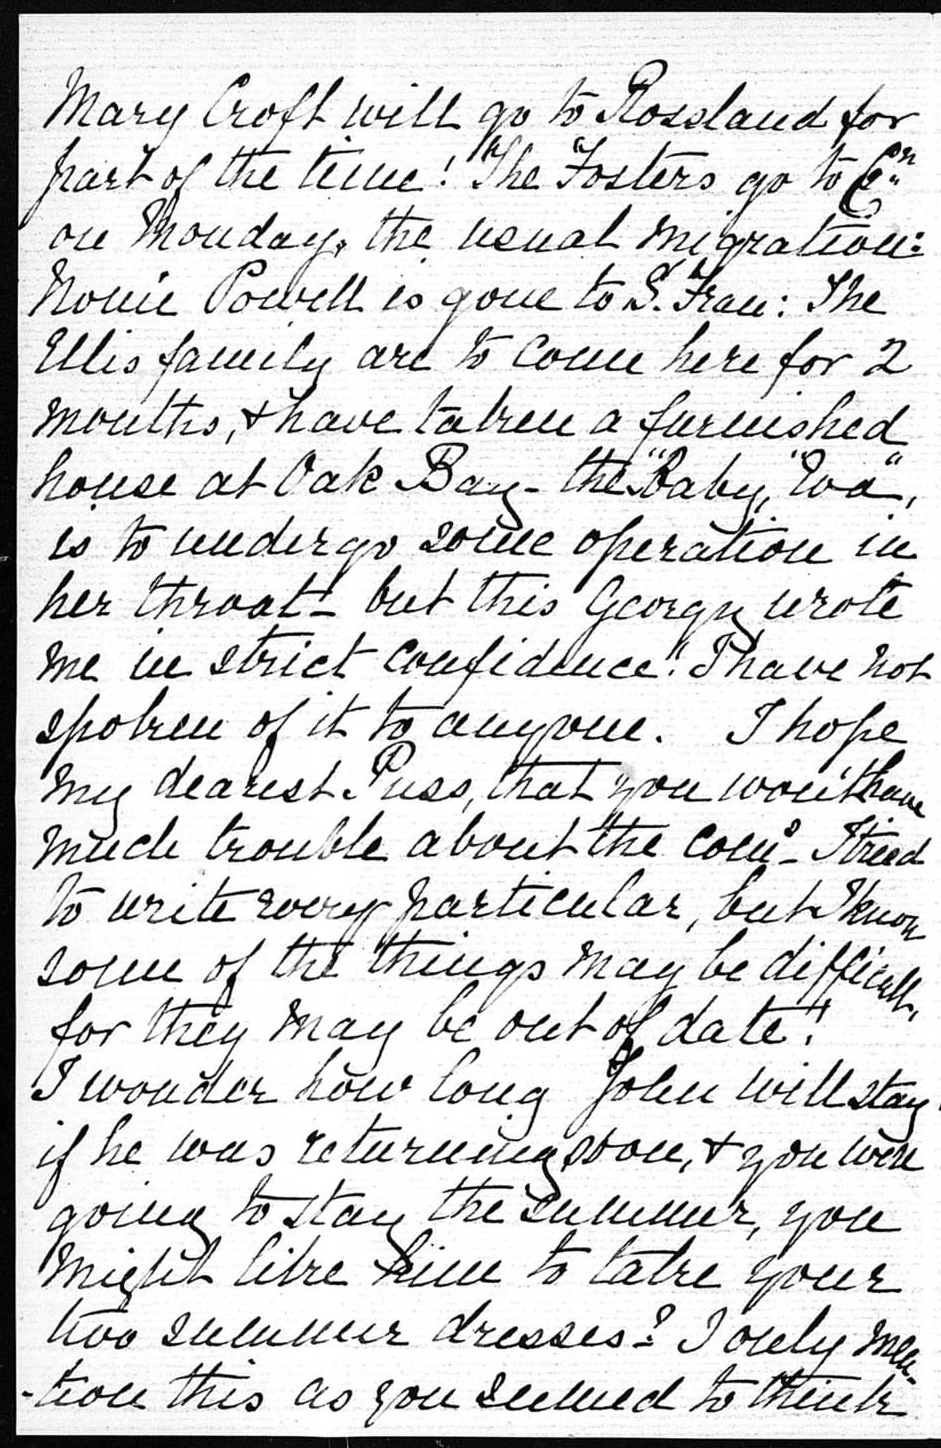 Mary Croft will go to Rossland for
part of the time! The Fosters go to
on Monday, the usual migration:
Nonie Powell is gone to S. Fran: The
Ellis family are to come here for 2
months, & have taken a furnished
house at Oak Bay - the "Baby," "Eva",
is to undergo some operation in
her throat - but this Georgy wrote
me in strict confidence! I have not
spoken of it to anyone. I hope
my dearest Puss, that you won't have
much trouble about the - I tried
to write every particular, but I know
some of the things may be difficult,
for they may be out of date!
I wonder how long John will stay
if he was returning soon, & you were
going to stay the summer, you
might like him to take your
two summer dresses? I only men
-tion this as you seemed to think